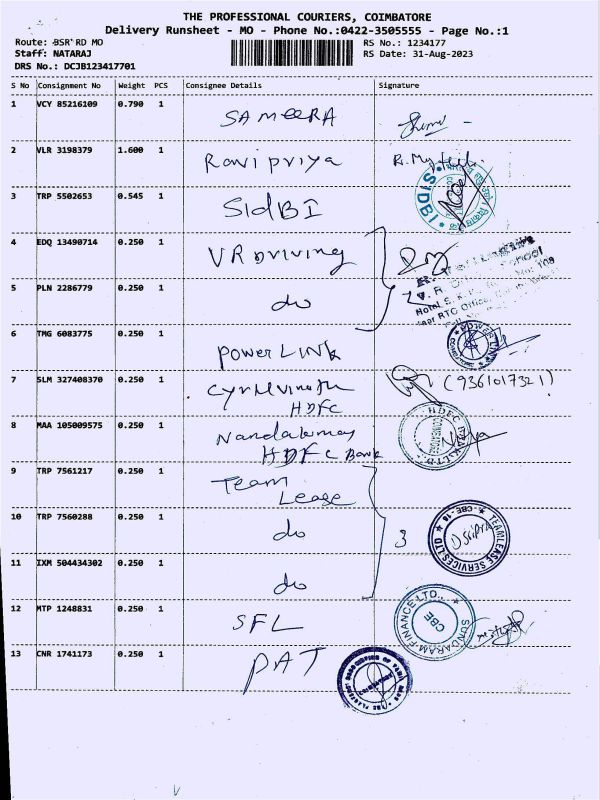 THE PROFESSIONAL COURIERS, COIMBATORE
Delivery Runsheet - MO - Phone No.:0422-3505555 - Page No.:1
Route: BSR RD MO
RS No.: 1234177
Staff: NATARAJ
RS Date: 31-Aug-2023
DRS No.: DCJB123417701
S No Consignment No Weight PCS Consignee Details Signature
1 VCY 85216109 0.790 1 SAMEERA
2 VLR 3198379 1.600 1 Ravipriya
3 TRP 5502653 0.545 1 SIdBI SIDBI
4 EDQ 13490714 0.250 1 VR Driving
5 PLN 2286779 0.250 1 do
6 TMG 6083775 0.250 1 Power LINK POWER LINK
7 SLM 327408370 0.250 1 HDFC (9361017321)
8 MAA 105009575 0.250 1 HDFC Bank HDFC BANK LTD
9 TRP 7561217 0.250 1 Team Lease
10 TRP 7560288 0.250 1 do 3 TEAMLEASE SERVICES LTD CBE-18
11 IXM 504434302 0.250 1 do
12 MTP 1248831 0.250 1 SFL SUNDARAM FINANCE LTD., CBE
13 CNR 1741173 0.250 1 PAT